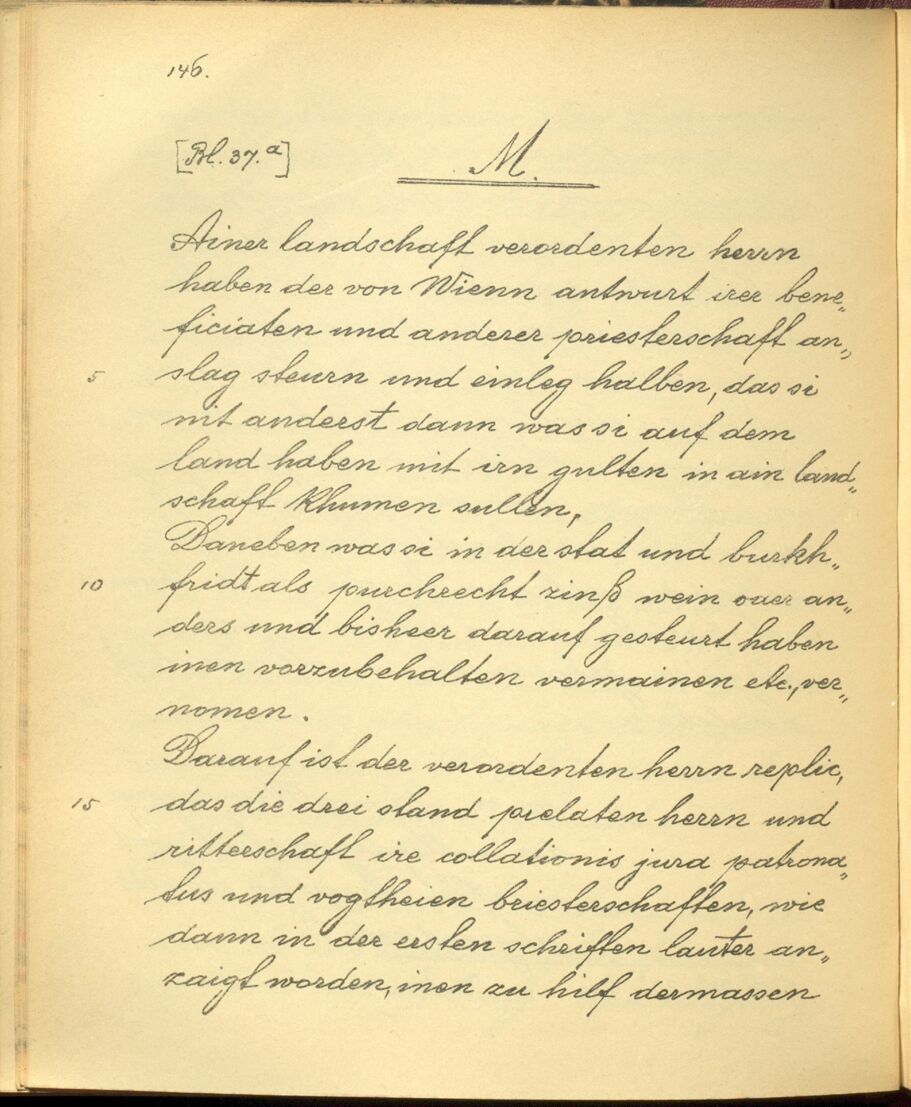 146.
[Bl. 37.a]
M.
Ainer landschaft verordenten herrn
haben der von Wienn antwurt irer bene„
ficiaten und anderer priesterschaft an„
5 slag steurn und einleg halben, das si
nit anderst dann was si auf dem
land haben mit irn gulten in ain land„
schaft khumen sullen,
Daneben was si in der stat und burkh„
10 fridt als purchrecht zinß wein oder an„
ders und bisheer darauf gesteurt haben
inen vorzubehalten vermainen etc., ver„
nomen.
Darauf ist der verordenten herrn replic,
15 das die drei stand prelaten herrn und
ritterschaft ire collationis jura patrona„
tus und vogtheien briesterschaften, wie
dann in der ersten schriften lauter an„
zaigt worden, inen zu hilf dermassen